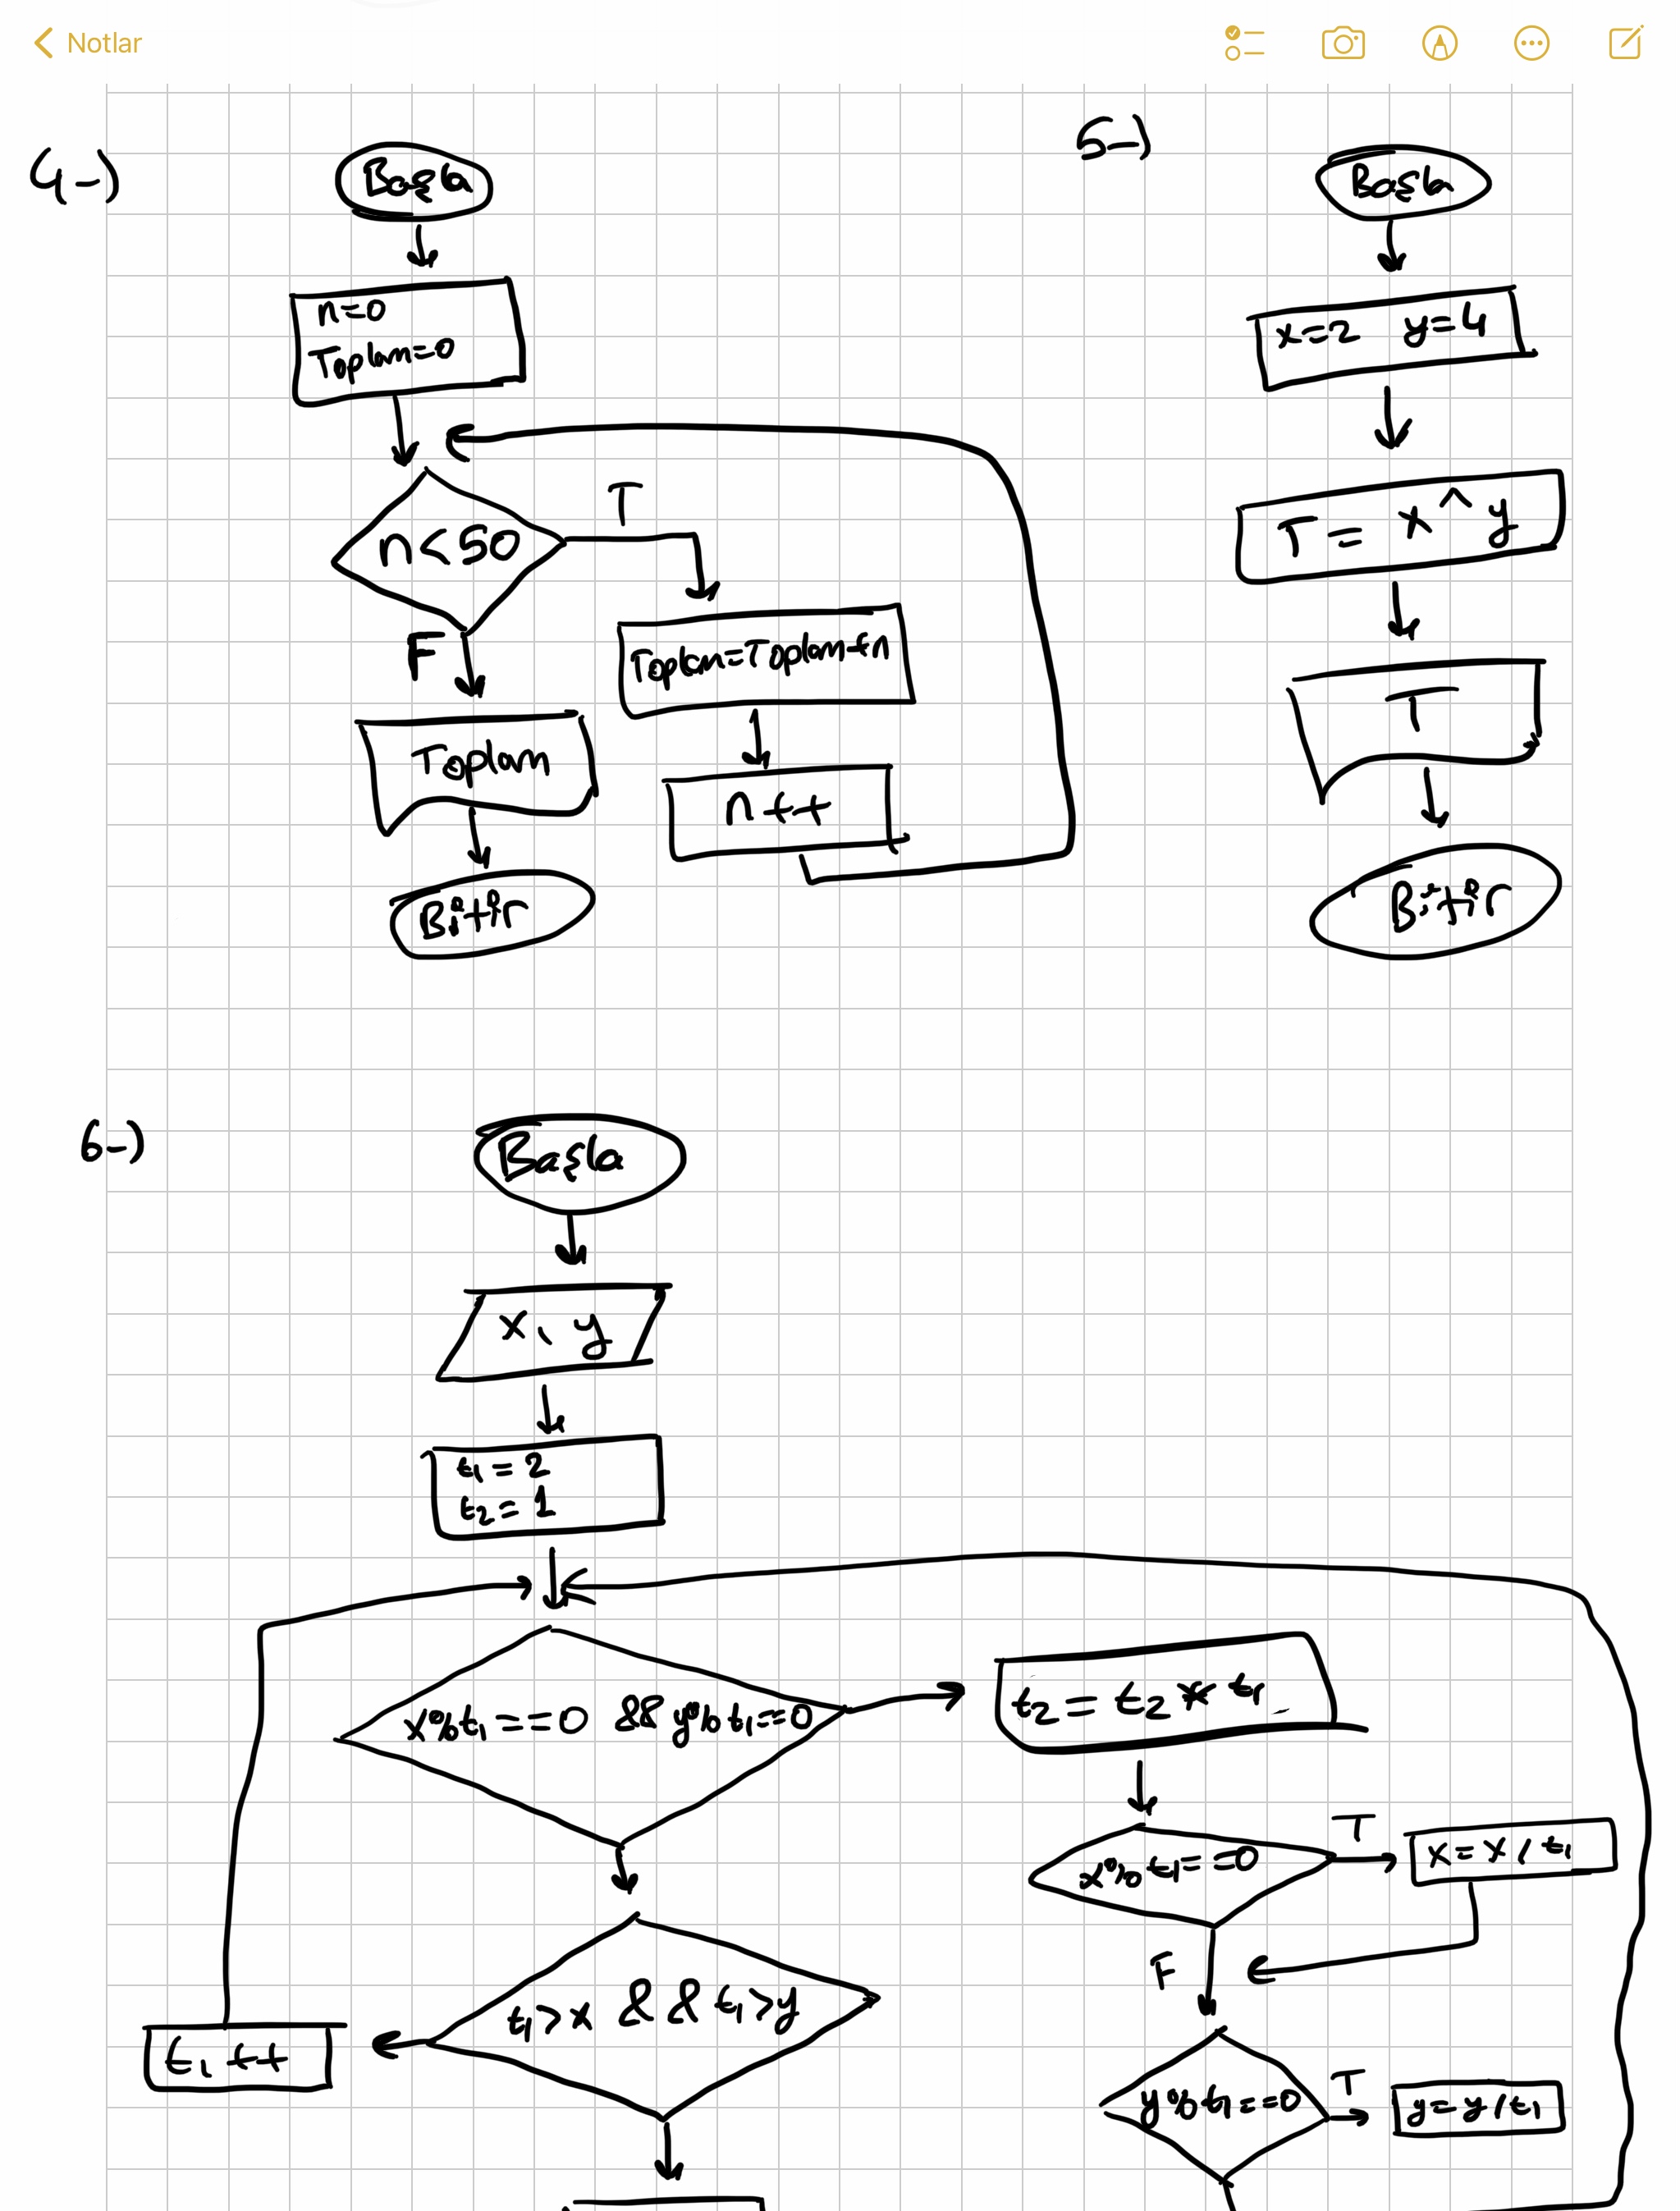 Notlar
4-)
Başla
n=0
Toplam=0
n<50
T
F
Toplam=Toplam+n
n++
Toplam
Bitir
5-)
Başla
x=2 y=4
T= x^y
T
Bitir
6-)
Başla
x, y
t1=2
t2=1
x%t1==0 && y%t1==0
t2=t2*t1
x%t1==0
T
x=x/t1
F
t1>x && t1>y
t1++
y%t1==0
T
y=y/t1